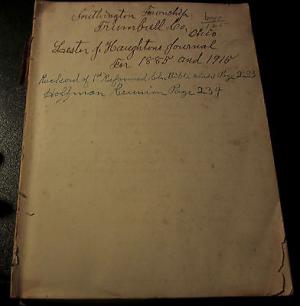 Southington Township
Trumbull Co,
Ohio
Lester J Haughtons Journal
For 1885 and 1915
Reckord of 1st Reformed Ch Bible class Page 233
Hoffman Reunion Page 234